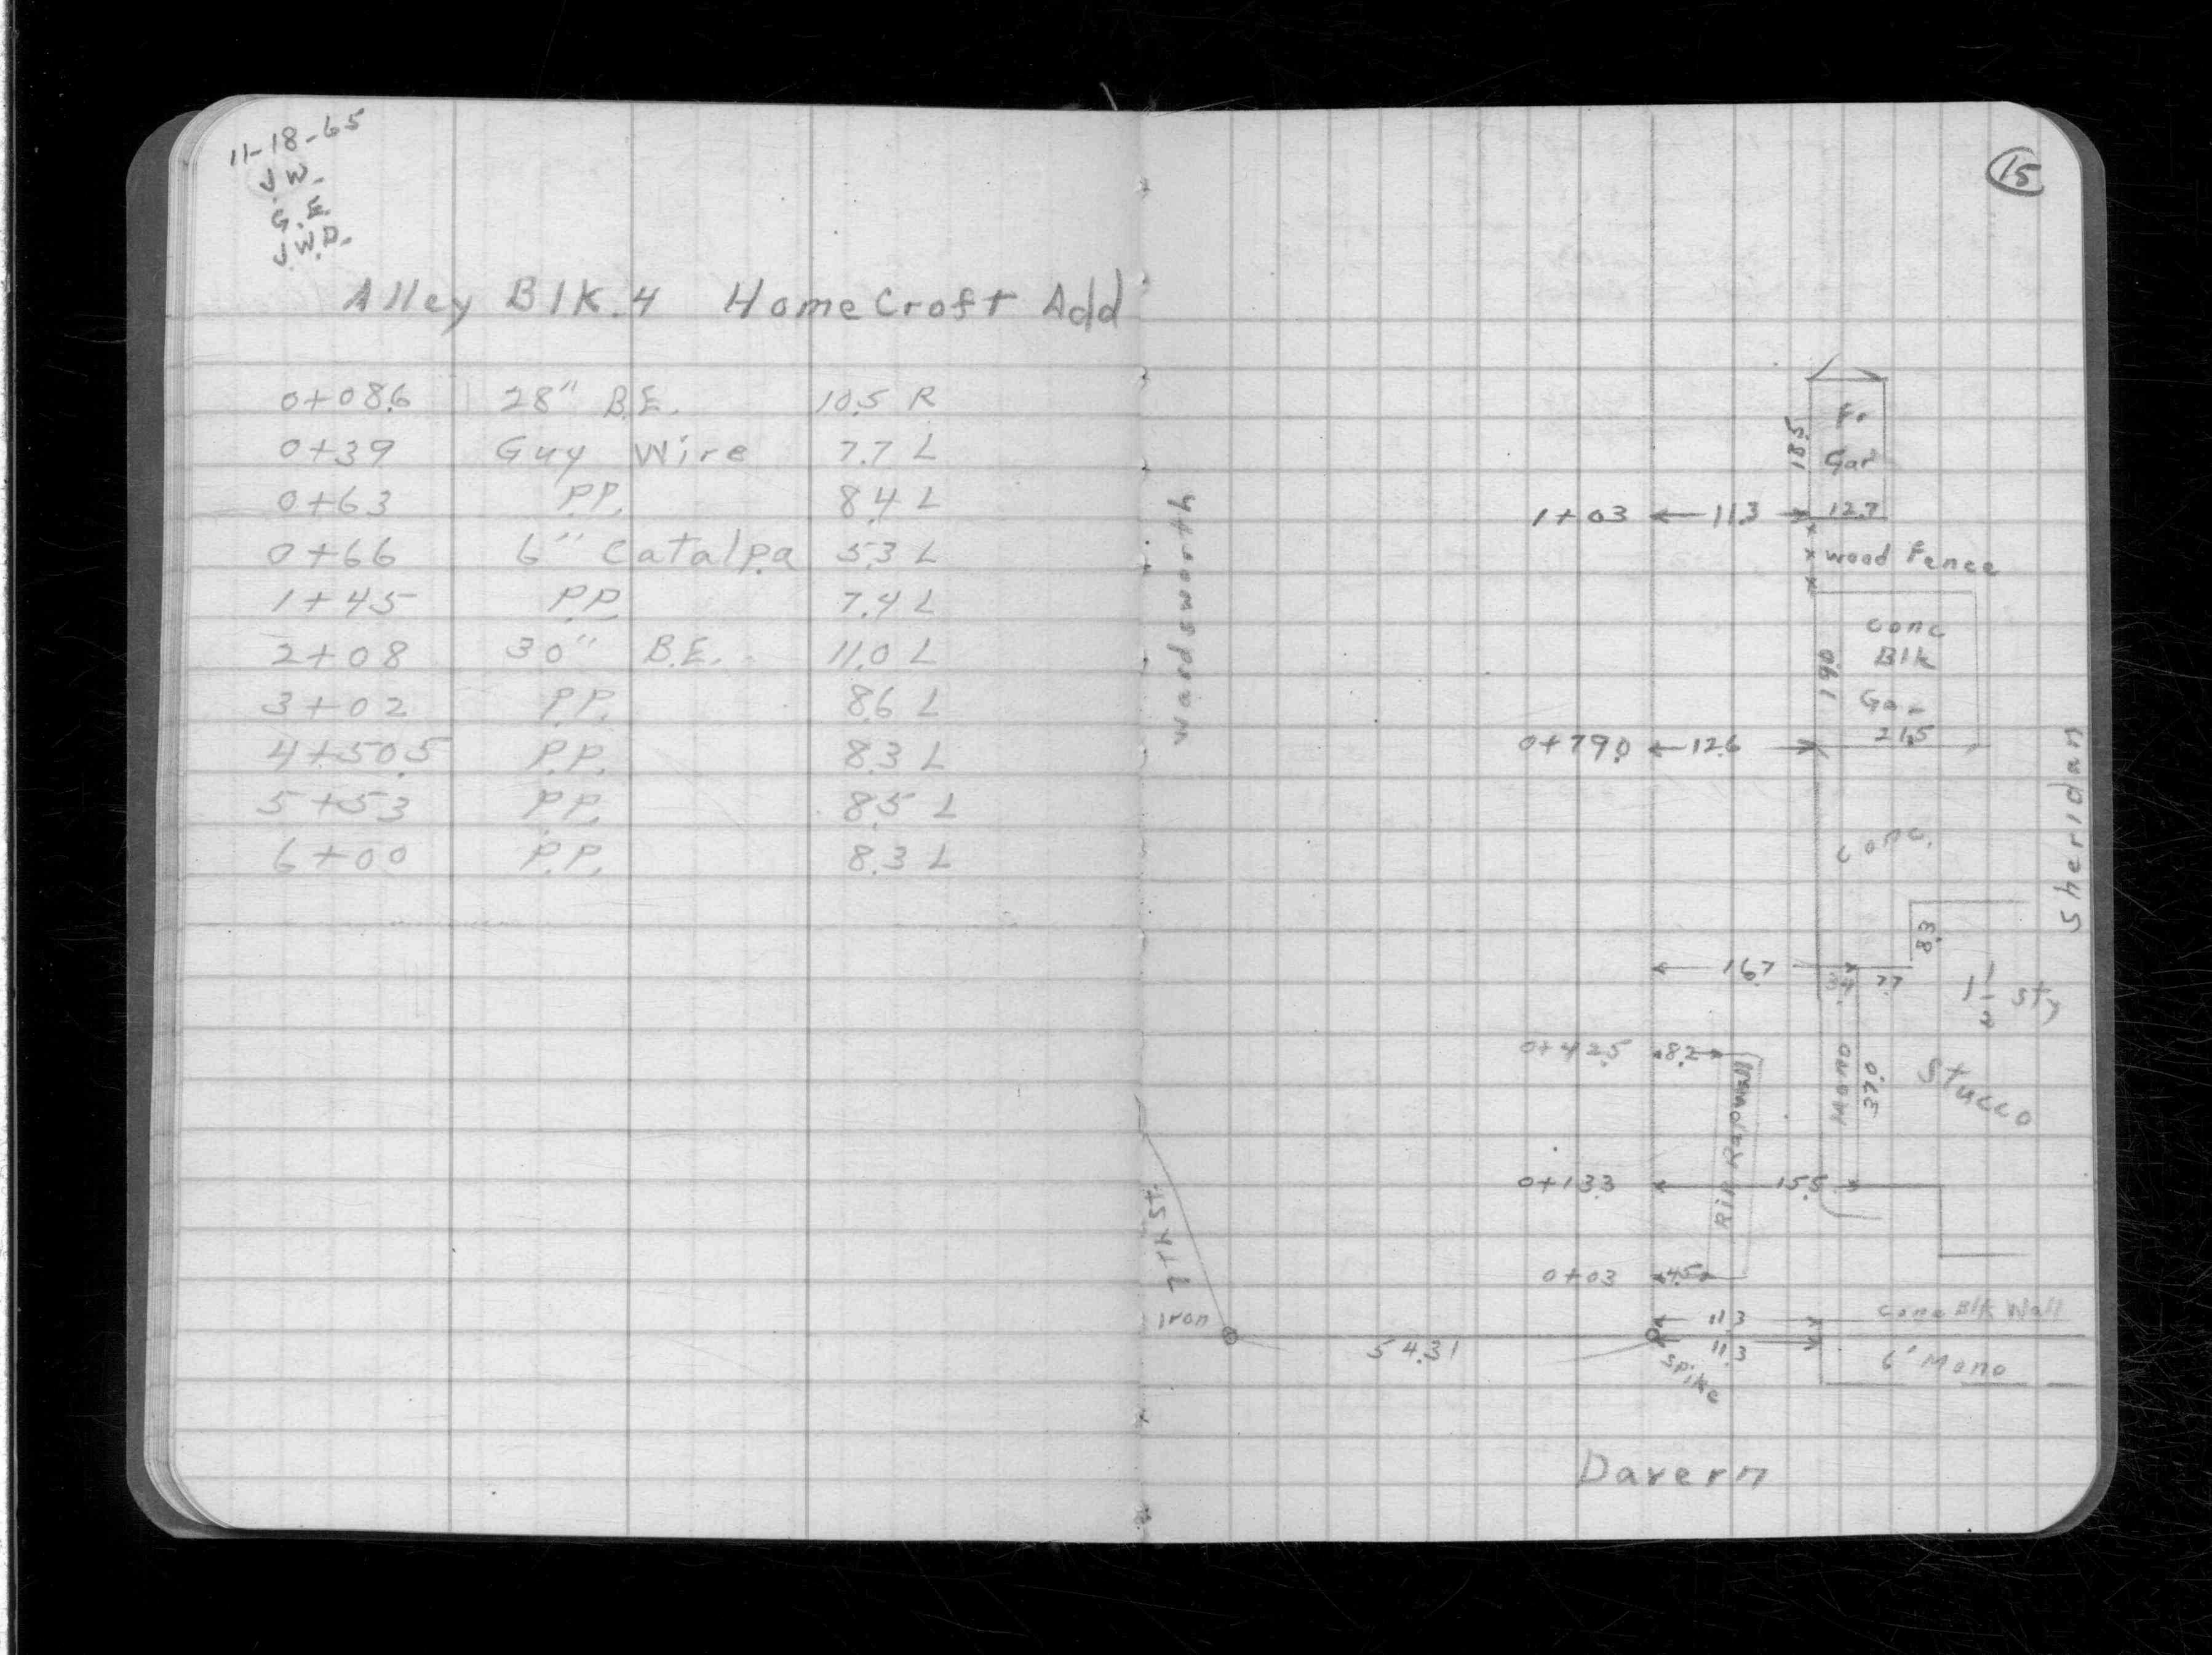 11-18-65
J.W.
G.E.
J.W.D.
Alley Blk. 4 HomeCroft Add
0+08.6 28" B.E. 10.5 R
0+39 Guy Wire 7.7 L
0+63 P.P. 8.4 L
0+66 6" Catalpa 5.3 L
1+45 P.P. 7.4 L
2+08 30" B.E. 11.0 L
3+02 P.P. 8.6 L
4+50.5 P.P. 8.3 L
5+53 P.P. 8.5 L
6+00 P.P. 8.3 L
15
Wardsworth
Fr.
Gar
18.5
1+03 11.3 12.7
wood Fence
conc
Blk
Gar
19.0
21.5
0+79.0 12.6
Sheridan
conc.
8.3
16.7 3.4 7.7
1 1/2 sty
Stucco
0+42.5 8.2
Mono
33.0
Rip Rap on Wall
0+13.3 15.5
0+03 4.5
7th St.
Iron
11.3 conc Blk Wall
54.31 11.3 6' Mono
Spike
Davern